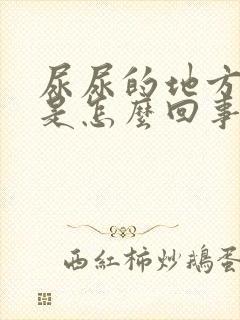 尿尿的地方
是怎麼回事
西紅柿炒鵝蛋